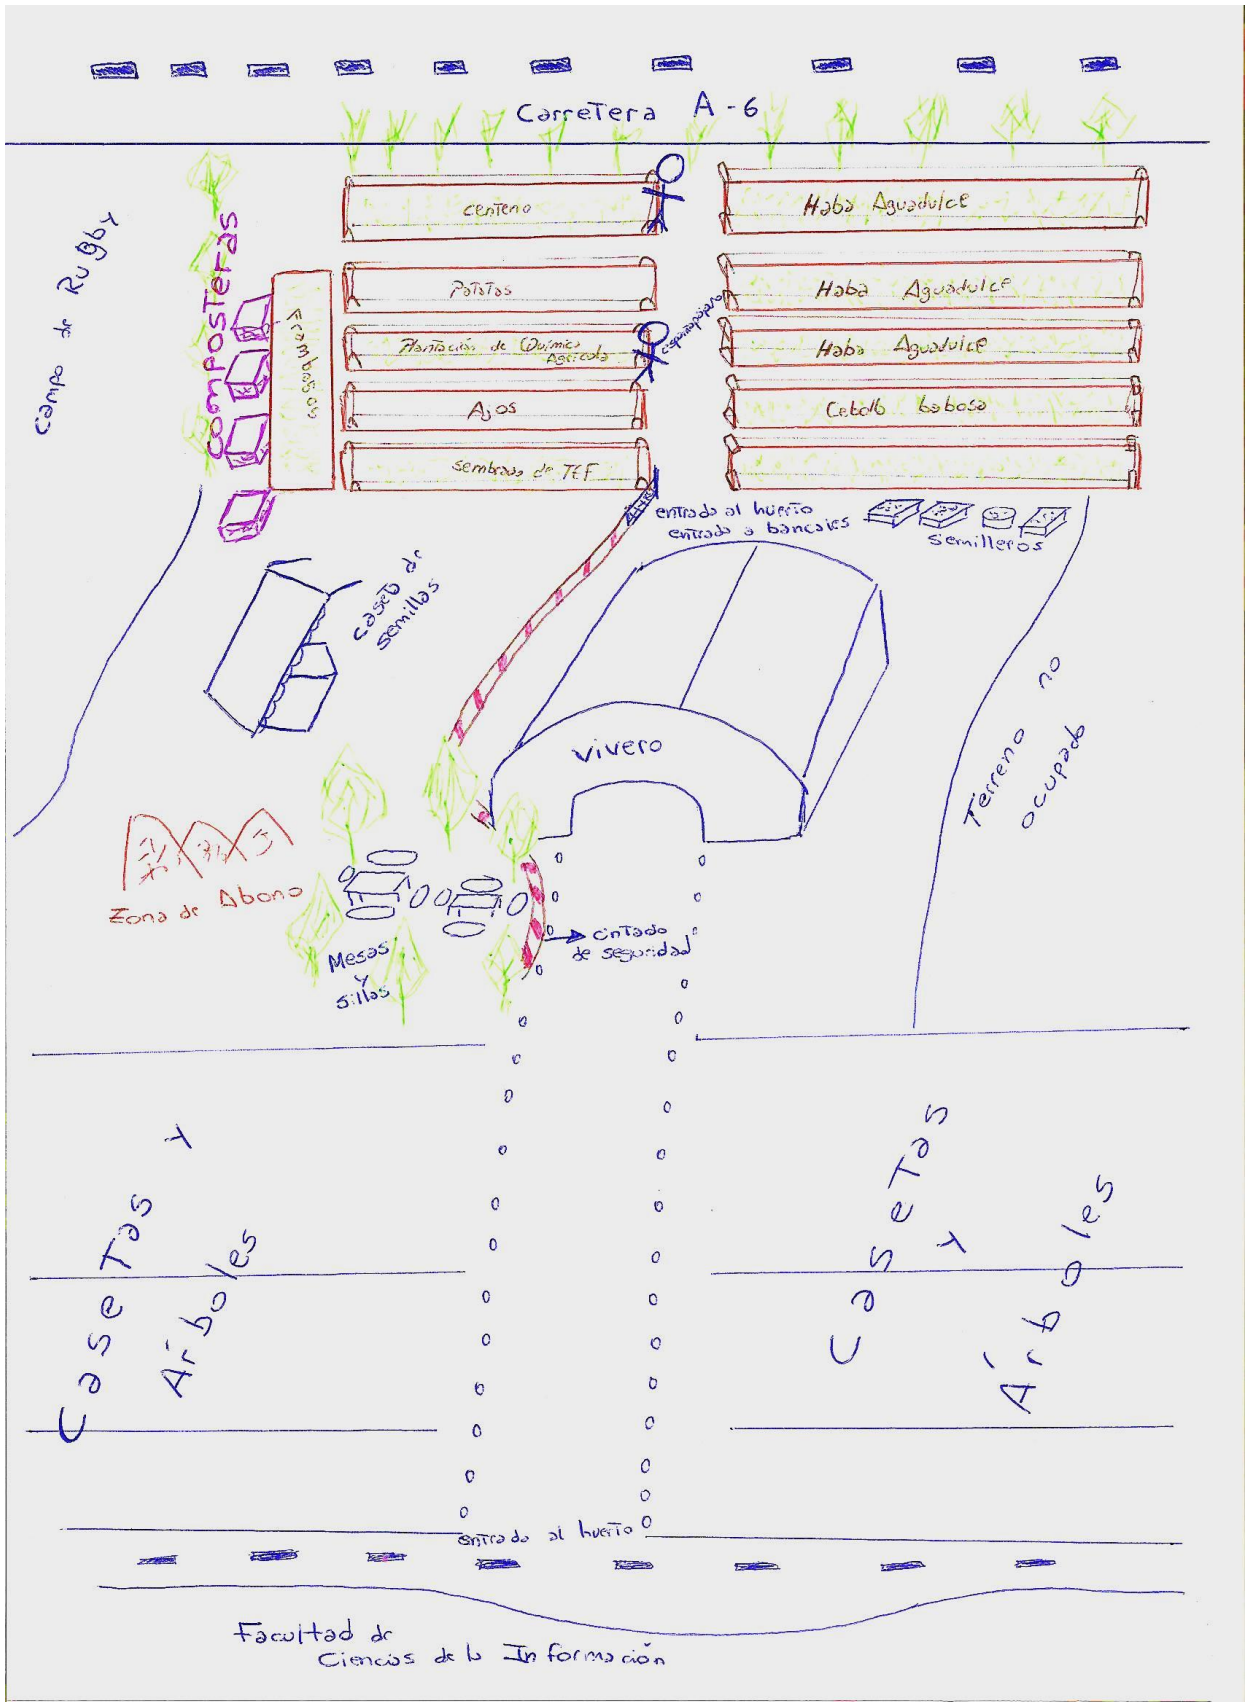 Carretera A-6
campo de Rugby
composteras
Frambesas
centeno
Patatas
Plantación de Química
Agrícola
Ajos
sembrado de TEF
espantapájaros
Haba Aguadulce
Haba Aguadulce
Haba Aguadulce
Cebolla babosa
entrada al huerto
entrada a bancales
semilleros
caseta de
semillas
vivero
Terreno no
ocupado
Zona de Abono
Mesas
y
sillas
cintado
de seguridad
Casetas y
Árboles
Casetas
y
Árboles
entrada al huerto
Facultad de
Ciencias de la Información